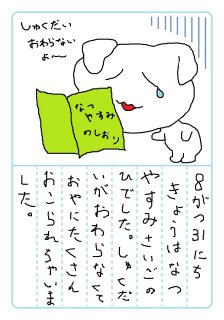 しゅくだい
おわらない
よ〜
なつ
やすみ
のしおり
8がつ31にち
きょうはなつ
やすみさいごの
ひでした。しゅくだ
いがおわらなくて
おやにたくさん
おこられちゃいま
した。